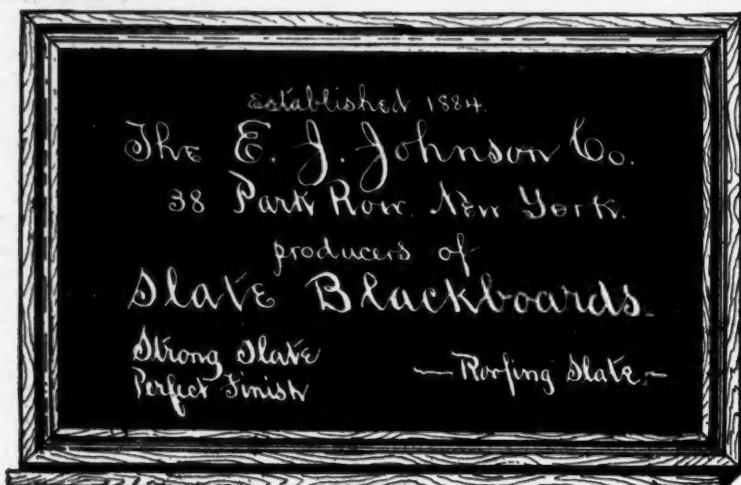 Established 1884.
The E. J. Johnson Co.
38 Park Row. New York.
producers of
Slate Blackboards.
Strong Slate
Perfect Finish
— Roofing Slate. —